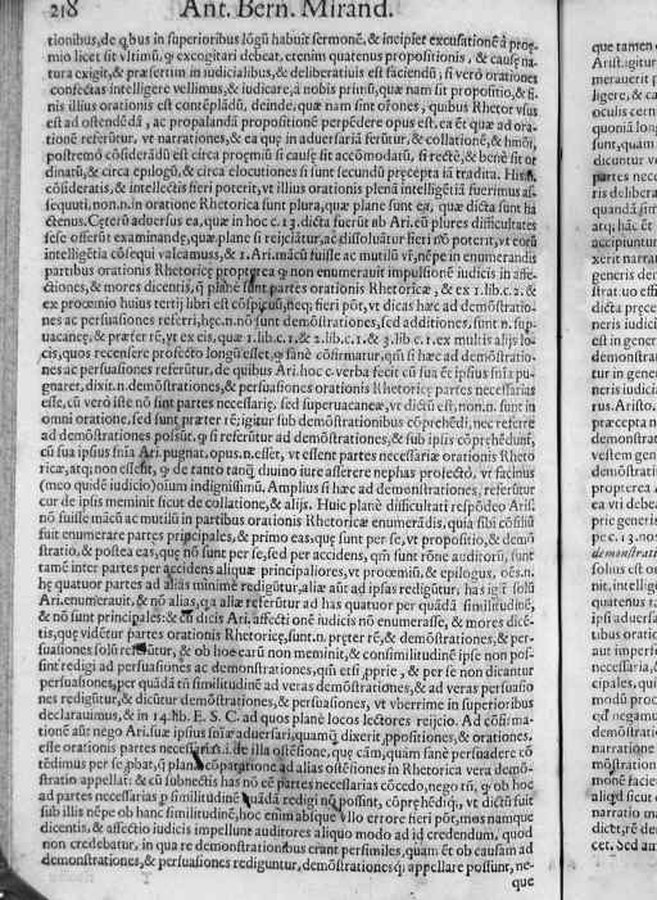 218 Ant. Bern. Mirand.
tionibus, de q̃bus in superioribus lõgũ habuit sermonẽ, & incipiet excusationẽ à proę-
mio licet sit vltimũ, ꝙ excogitari debeat, etenim quatenus propositionis, & causę na-
tura exigit, & præsertim in iudicialibus, & deliberatiuis est faciendũ; si verò orationes
confectas intelligere vellimus, & iudicare, à nobis primũ, quæ nam sit propositio, & fi-
nis illius orationis est contẽplãdũ, deinde, quæ nam sint or̃ones, quibus Rhetor vsus
est ad ostendẽdã, ac propalandã propositionẽ perpẽdere opus est. ea ẽt quæ ad ora-
tionẽ referũtur, vt narrationes, & ea quę in aduersariã ferũtur, & collationẽ, & hmõi,
postremò cõsiderãdũ est circa proęmiũ si causę sit accõmodatũ, si rectè, & benè sit or
dinatũ, & circa epilogũ, & circa elocutiones si sunt secundũ pręcepta iã tradita. His.n.
cõsideratis, & intellectis fieri poterit, vt illius orationis plenã intelligẽtiã fuerimus as-
sequuti, non.n. in oratione Rhetorica sunt plura, quæ planè sunt ea, quæ dicta sunt ha
ctenus. Cęterũ aduersus ea, quæ in hoc c. 13. dicta fuerũt ab Ari. cũ plures difficultates
sese offerũt examinandę, quæ planè si reijciãtur, ac dissoluãtur fieri nõ poterit, vt eorũ
intelligẽtiã cõsequi valeamus, & 1. Ari. mãcũ fuisse ac mutilũ vr̃, nẽpe in enumerandis
partibus orationis Rhetoricę propterea ꝙ non enumerauit impulsionẽ iudicis in affe-
ctiones, & mores dicentis, q̃ planè sunt partes orationis Rhetoricæ, & ex 1. lib. c. 2. &
ex proœmio huius tertij libri est cõspicuũ, neq; fieri põt, vt dicas hæc ad demõstratio-
nes ac persuasiones referri, hęc.n. nõ sunt demõstrationes, sed additiones, sunt n. sup-
uacaneę, & præter rẽ, vt ex eis, quæ 1. lib. c. 1. & 2. lib. c. 1. & 3. lib. c. 1. ex multis alijs lo-
cis, quos recensere profecto longũ esset, ꝙ sanè cõfirmatur, qm̃ si hæc ad demõstratio-
nes ac persuasiones referũtur, de quibus Ari. hoc c. verba fecit cũ sua ẽt ipsius sn̄ia pu-
gnaret, dixit.n. demõstrationes, & persuasiones orationis Rhetoricę partes necessarias
esse, cũ verò iste nõ sint partes necessarię, sed superuacaneæ, vt dictũ est, non.n. sunt in
omni oratione, sed sunt præter rẽ; igitur sub demõstrationibus cõprehẽdi, nec referre
ad demõstrationes possũt. ꝙ si referũtur ad demõstrationes, & sub ipsis cõpręhẽdunt,
cũ sua ipsius sn̄ia Ari. pugnat, opus.n. esset, vt essent partes necessariæ orationis Rheto
ricæ, atq; non essent, ꝙ de tanto tanq̃ diuino iure asserere nephas profecto, vt facinus
(meo quidẽ iudicio) oĩum indignissimũ. Amplius si hæc ad demonstrationes, referũtur
cur de ipsis meminit sicut de collatione, & alijs. Huic planè difficultati respõdeo Aris.
nõ fuisse mãcũ ac mutilum in partibus orationis Rhetoricæ enumerãdis, quia sibi cõsiliũ
fuit enumerare partes principales, & primo eas, quę sunt per se, vt propositio, & demõ
stratio, & postea eas, quę nõ sunt per se, sed per accidens, qm̃ sunt rõne auditorũ, sunt
tamẽ inter partes per accidens aliquæ principaliores, vt proœmiũ, & epilogus, oẽs.n.
hę quatuor partes ad alias minimè redigũtur, aliæ aũt ad ipsas redigũtur, has igr̃ solũ
Ari. enumerauit, & nõ alias, q̃a aliæ referũtur ad has quatuor per quãdã similitudinẽ,
& nõ sunt principales: & cũ dicis Ari. affecti onẽ iudicis nõ enumerasse, & mores dicẽ-
tis, quę videtur partes orationis Rhetoricę, sunt.n. pręter rẽ, & demõstrationes, & per-
suasiones solũ referũtur, & ob hoc earũ non meminit, & consimilitudinẽ ipse non pos-
sint redigi ad persuasiones ac demonstrationes, qm̃ etsi ꝓprie, & per se non dicantur
persuasiones, per quãdã tñ similitudinẽ ad veras demõstrationes, & ad veras persuasio
nes redigũtur, & dicũtur demõstrationes, & persuasiones, vt vberrime in superioribus
declarauimus, & in 14. lib. E. S. C. ad quos planè locos lectores reijcio. Ad cõfirma-
tionẽ aũt nego Ari. suæ ipsius sn̄iæ aduersari, quamq̃ dixerit ꝓpositiones, & orationes,
esse orationis partes necessarias .i. de illa ostẽsione, quę cãm, quàm sanè persuadere cõ
tẽdimus per se ꝓbat, q̃ planè cõparatione ad alias ostẽsiones in Rhetorica vera demõ-
stratio appellat: & cũ subnectis has nõ eẽ partes necessarias cõcedo, nego tñ, ꝙ ob hoc
ad partes necessarias ꝑ similitudinẽ quãdã redigi nõ possint, cõpręhẽdiq;, vt dictũ fuit
sub illis nẽpe ob hanc similitudinẽ, hoc enim absque vllo errore fieri põt, mos namque
dicentis, & affectio iudicis impellunt auditores aliquo modo ad id credendum, quod
non credebatur, in qua re demonstrationibus erant persimiles, quam ẽt ob causam ad
demonstrationes, & persuasiones rediguntur, demõstrationesq; appellare possunt, ne-
que
que tamen
Arist. igitur
merauerit p
ligere, & ca
oculis cern
quoniã long
sunt, quam
dicuntur v
partes nece
ris delibera
quandã sim
atq; hãc
accipiuntur
xerit narra
generis der
strat uo effi
dicta præce
neris iudici
est in gener
demonstrat
tur in gener
neris iudicia
rus. Aristo.
præcepta n
demonstrat
vestem gen
demõstrati
propterea
ea vti debea
prie generis
pe c. 13. nos
demonstrati
solius est or
nit, intellige
quatenus ra
ipsi aduersa
tibus oratio
aut impugn
necessaria, &
cipales, qui
modũ proc
qd̃ negamu
demonstrat
narratione
mõstration
monẽ facien
aliqd̃ sicut
narratio m
dict;, rẽ de
cet. Sed am